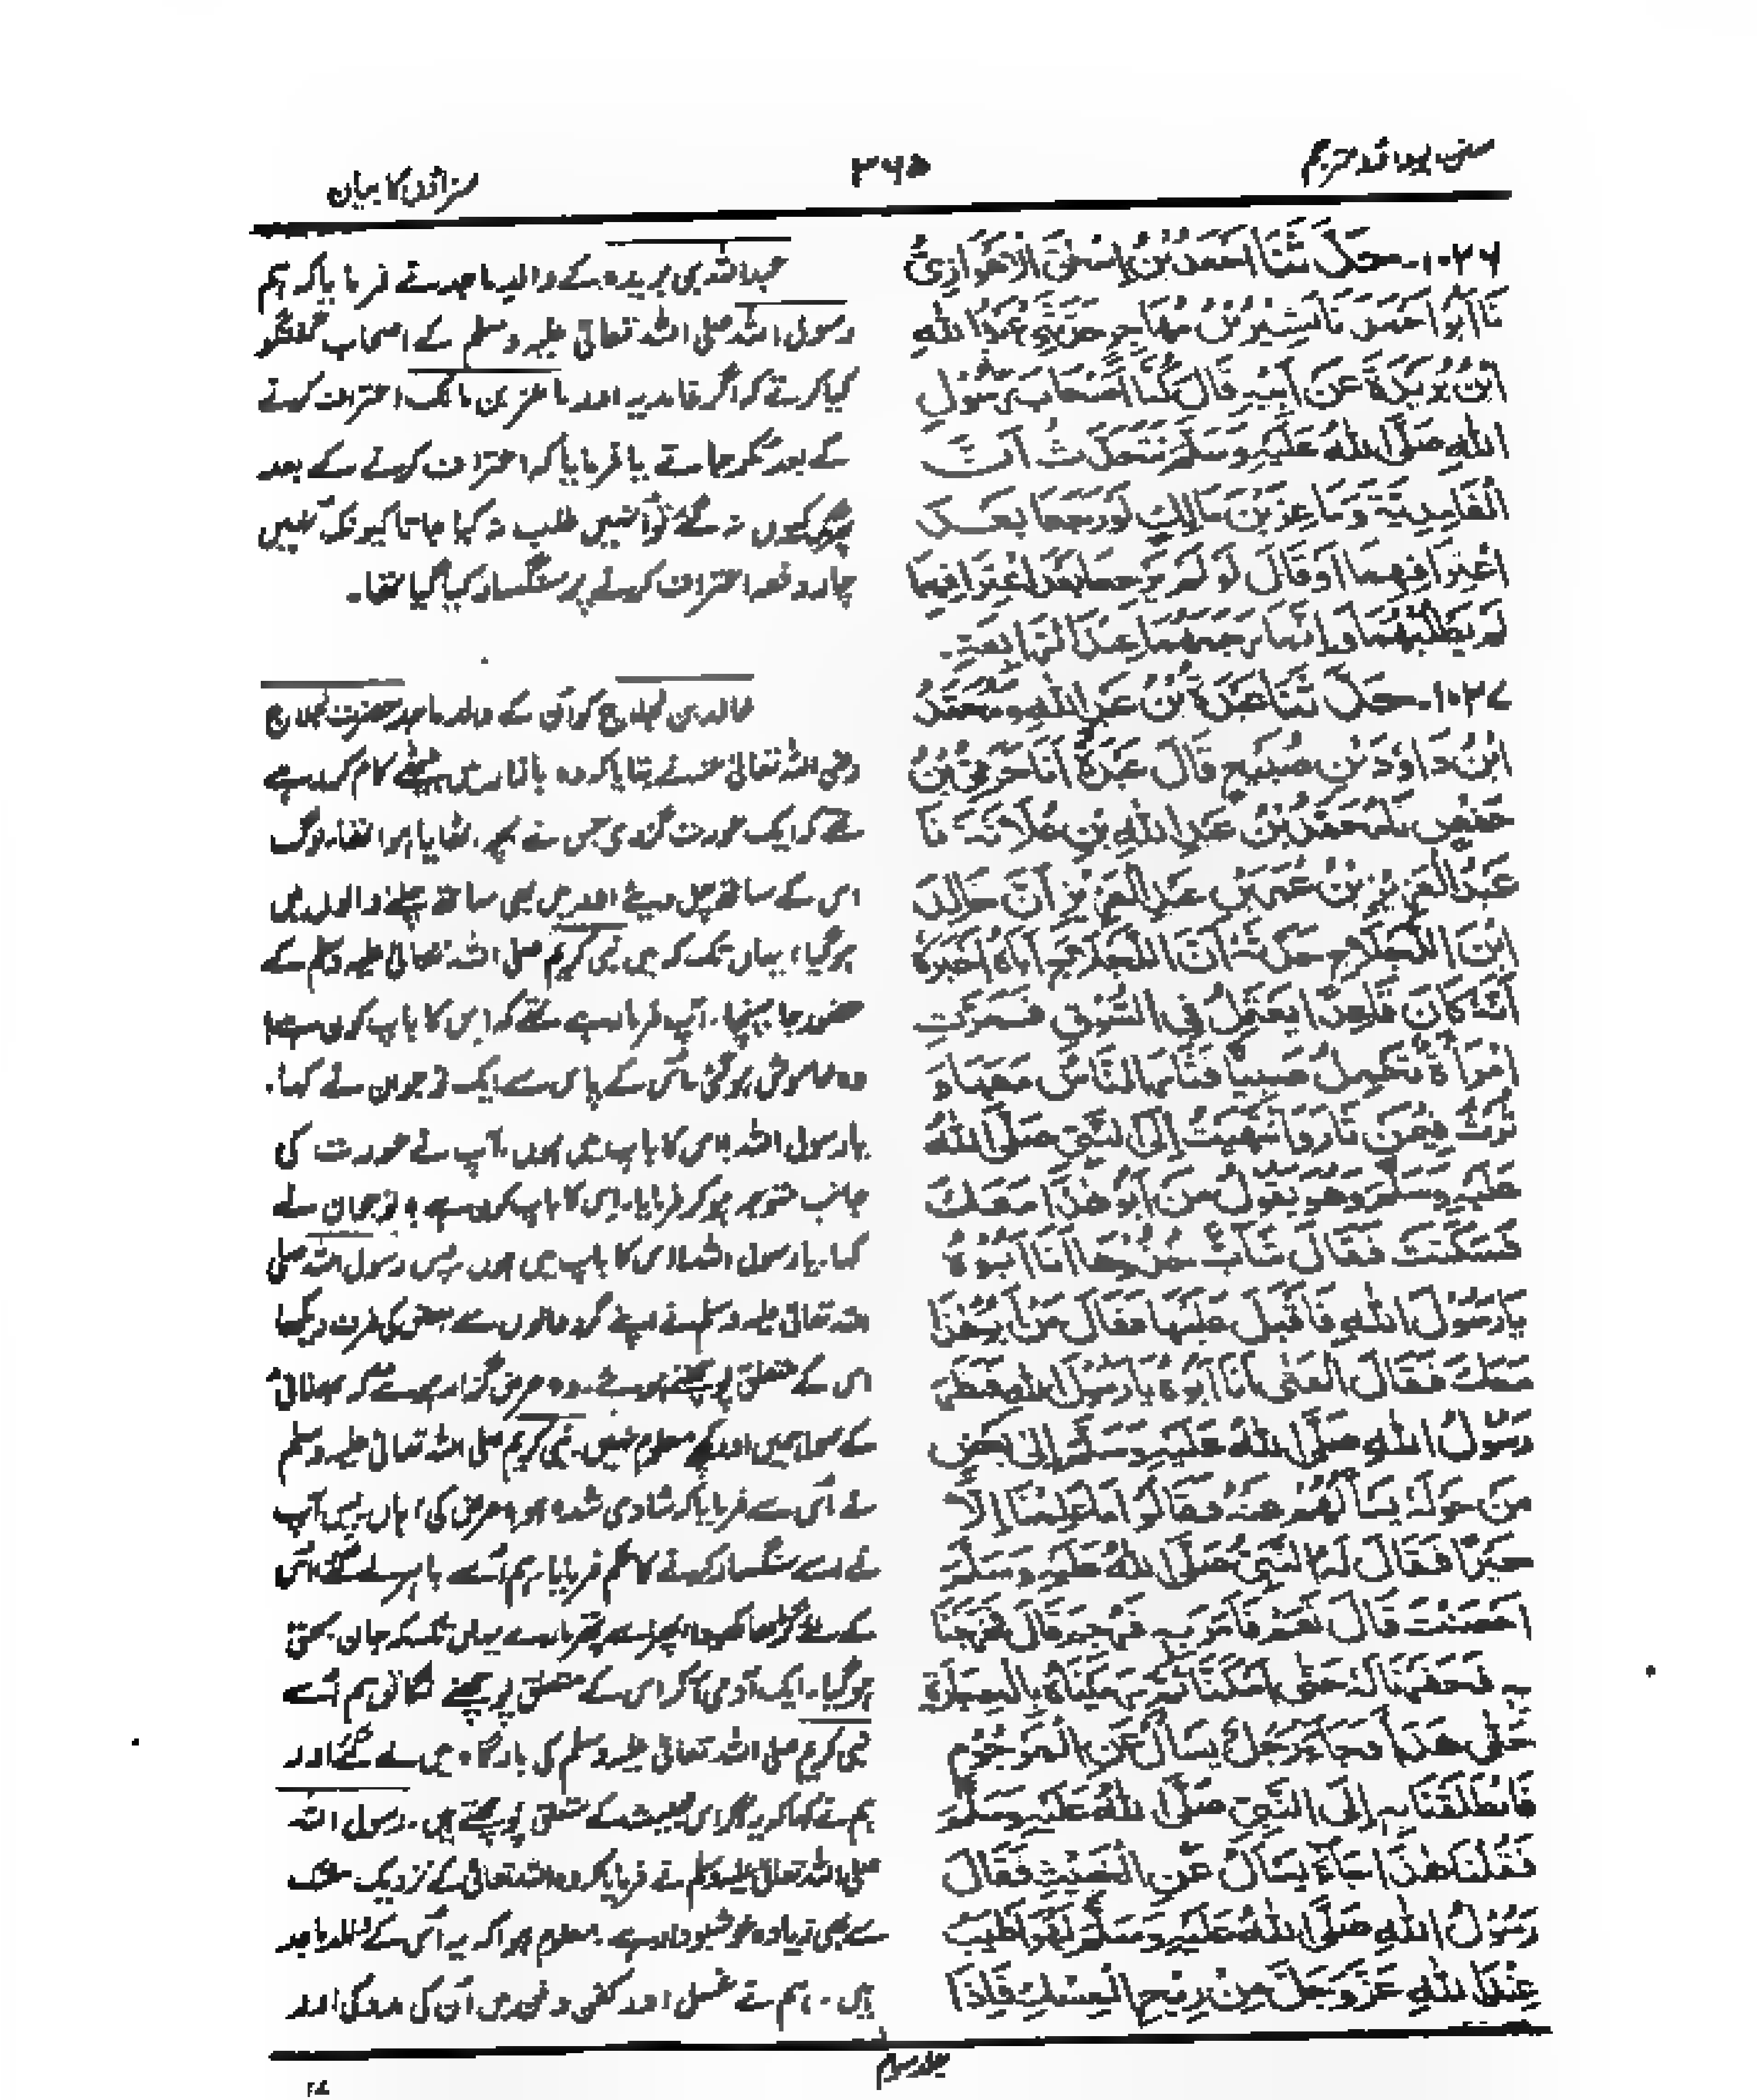 سنن ابوداؤد مترجم
۳۶۵
سزاؤں کا بیان
۱۰۲۶- حَدَّثَنَا اَحْمَدُ بْنُ اِسْحٰقَ الْاَهْوَازِیُّ
نَا اَبُوْ اَحْمَدَ نَا بَشِیْرُ بْنُ مُهَاجِرٍ حَدَّثَنِیْ عَبْدُ اللّٰهِ
ابْنُ بُرَیْدَةَ عَنْ اَبِیْهِ قَالَ كُنَّا اَصْحَابَ رَسُوْلِ
اللّٰهِ صَلَّی اللّٰهُ عَلَیْهِ وَسَلَّمَ نَتَحَدَّثُ اَنَّ
الْغَامِدِیَّةَ وَمَاعِزَ بْنَ مَالِكٍ لَوْ رَجَعَا بَعْدَ
اعْتِرَافِهِمَا اَوْ قَالَ لَوْ لَمْ یَرْجِعَا بَعْدَ اعْتِرَافِهِمَا
لَمْ یَطْلُبْهُمَا وَاِنَّمَا رَجَمَهُمَا عِنْدَ الرَّابِعَةِ.
۱۰۲۷- حَدَّثَنَا عَبْدَةُ بْنُ عَبْدِ اللّٰهِ وَمُحَمَّدُ
ابْنُ دَاوٗدَ بْنِ صُبَیْحٍ قَالَ عَبْدَةُ اَنَا حَرَمِیُّ بْنُ
حَفْصٍ نَا مُحَمَّدُ بْنُ عَبْدِ اللّٰهِ بْنِ عُلَاثَةَ نَا
عَبْدُ الْعَزِیْزِ بْنُ عُمَرَ بْنِ عَبْدِ الْعَزِیْزِ اَنَّ خَالِدَ
ابْنَ اللَّجْلَاجِ حَدَّثَهٗ اَنَّ اللَّجْلَاجَ اَبَاهُ اَخْبَرَهٗ
اَنَّهٗ كَانَ قَاعِدًا یَعْتَمِلُ فِی السُّوْقِ فَمَرَّتِ
امْرَأَةٌ تَحْمِلُ صَبِیًّا فَثَارَ النَّاسُ مَعَهَا وَ
ثُرْتُ فِیْمَنْ ثَارَ وَانْتَهَیْتُ اِلَی النَّبِیِّ صَلَّی اللّٰهُ
عَلَیْهِ وَسَلَّمَ وَهُوَ یَقُوْلُ مَنْ اَبُوْ هٰذَا مَعَكِ
فَسَكَتَتْ فَقَالَ شَابٌّ حَذْوَهَا اَنَا اَبُوْهُ
یَا رَسُوْلَ اللّٰهِ فَاَقْبَلَ عَلَیْهَا فَقَالَ مَنْ اَبُوْ هٰذَا
مَعَكِ فَقَالَ الْفَتٰی اَنَا اَبُوْهُ یَا رَسُوْلَ اللّٰهِ فَنَظَرَ
رَسُوْلُ اللّٰهِ صَلَّی اللّٰهُ عَلَیْهِ وَسَلَّمَ اِلٰی بَعْضِ
مَنْ حَوْلَهٗ یَسْأَلُهُمْ عَنْهُ فَقَالُوْا مَا عَلِمْنَا اِلَّا
خَیْرًا فَقَالَ لَهُ النَّبِیُّ صَلَّی اللّٰهُ عَلَیْهِ وَسَلَّمَ
اَحْصَنْتَ قَالَ نَعَمْ فَاَمَرَ بِهٖ فَرُجِمَ قَالَ فَخَرَجْنَا
بِهٖ فَحَفَرْنَا لَهٗ حَتّٰی اَمْكَنَّا ثُمَّ رَمَیْنَاهُ بِالْحِجَارَةِ
حَتّٰی هَدَأَ فَجَاءَ رَجُلٌ یَسْأَلُ عَنِ الْمَرْجُوْمِ
فَانْطَلَقْنَا بِهٖ اِلَی النَّبِیِّ صَلَّی اللّٰهُ عَلَیْهِ وَسَلَّمَ
فَقُلْنَا هٰذَا جَاءَ یَسْأَلُ عَنِ الْخَبِیْثِ فَقَالَ
رَسُوْلُ اللّٰهِ صَلَّی اللّٰهُ عَلَیْهِ وَسَلَّمَ لَهُوَ اَطْیَبُ
عِنْدَ اللّٰهِ عَزَّ وَجَلَّ مِنْ رِیْحِ الْمِسْكِ فَاِذَا
عبداللہ بن بریدہ کے والد ماجد نے فرمایا کہ ہم
رسول اللہ صلی اللہ تعالیٰ علیہ وسلم کے اصحاب گفتگو
کیا کرتے کہ اگر غامدیہ اور ماعز بن مالک اعتراف کرنے
کے بعد مکر جاتے یا فرمایا کہ اعتراف کرنے کے بعد
پھر کیوں نہ گئے تو انہیں طلب نہ کیا جاتا کیونکہ انہیں
چار دفعہ اعتراف کرنے پر سنگسار کیا گیا تھا۔
خالد بن لجلاج کو ان کے والد ماجد حضرت لجلاج
رضی اللہ تعالیٰ عنہ نے بتایا کہ وہ بازار میں بیٹھے کام کر رہے
تھے کہ ایک عورت گزری جس نے بچہ اٹھایا ہوا تھا۔ لوگ
اس کے ساتھ چل دیئے اور میں بھی ساتھ چلنے والوں میں
ہو گیا، یہاں تک کہ میں نبی کریم صلی اللہ تعالیٰ علیہ وسلم کے
حضور جا پہنچا۔ آپ فرما رہے تھے کہ اس کا باپ کون ہے؟
وہ خاموش ہو گئی۔ اُس کے پاس سے ایک نوجوان نے کہا۔
یا رسول اللہ! اس کا باپ میں ہوں۔ آپ نے عورت کی
جانب متوجہ ہو کر فرمایا۔ اس کا باپ کون ہے؟ نوجوان نے
کہا۔ یا رسول اللہ! اس کا باپ میں ہوں۔ پس رسول اللہ صلی
اللہ تعالیٰ علیہ وسلم نے اپنے گرد والوں سے بعض کی طرف دیکھا
اس کے متعلق پوچھتے ہوئے۔ وہ عرض گزار ہوئے کہ بھلائی
کے سوا ہمیں اور کچھ معلوم نہیں۔ نبی کریم صلی اللہ تعالیٰ علیہ وسلم
نے اُس سے فرمایا کہ شادی شدہ ہو؟ عرض کی، ہاں۔ پس آپ
نے اسے سنگسار کرنے کا حکم فرمایا۔ ہم اُسے باہر لے گئے، اُس
کے لئے گڑھا کھودا، پھر اسے پتھر مارے یہاں تک کہ جان بحق
ہو گیا۔ ایک آدمی آ کر اس کے متعلق پوچھنے لگا تو ہم اُسے
نبی کریم صلی اللہ تعالیٰ علیہ وسلم کی بارگاہ میں لے گئے اور
ہم نے کہا کہ یہ آ کر اس خبیث کے متعلق پوچھتے ہیں۔ رسول اللہ
صلی اللہ تعالیٰ علیہ وسلم نے فرمایا کہ وہ اللہ تعالیٰ کے نزدیک مشک
سے بھی زیادہ خوشبودار ہے۔ معلوم ہوا کہ یہ اُس کے والد ماجد
ہیں۔ ہم نے غسل اور کفن دفن میں اُن کی مدد کی اور
جلد سوم
۴۷